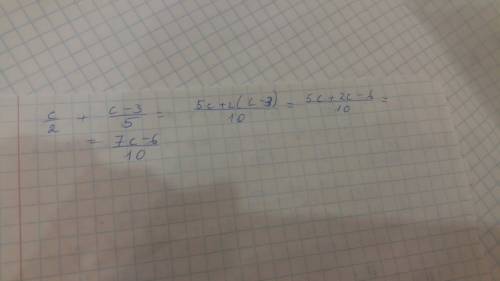 c/2 + (c-3)/5 = (5c+2(c-3))/10 = (5c+2c-6)/10 =
= (7c-6)/10